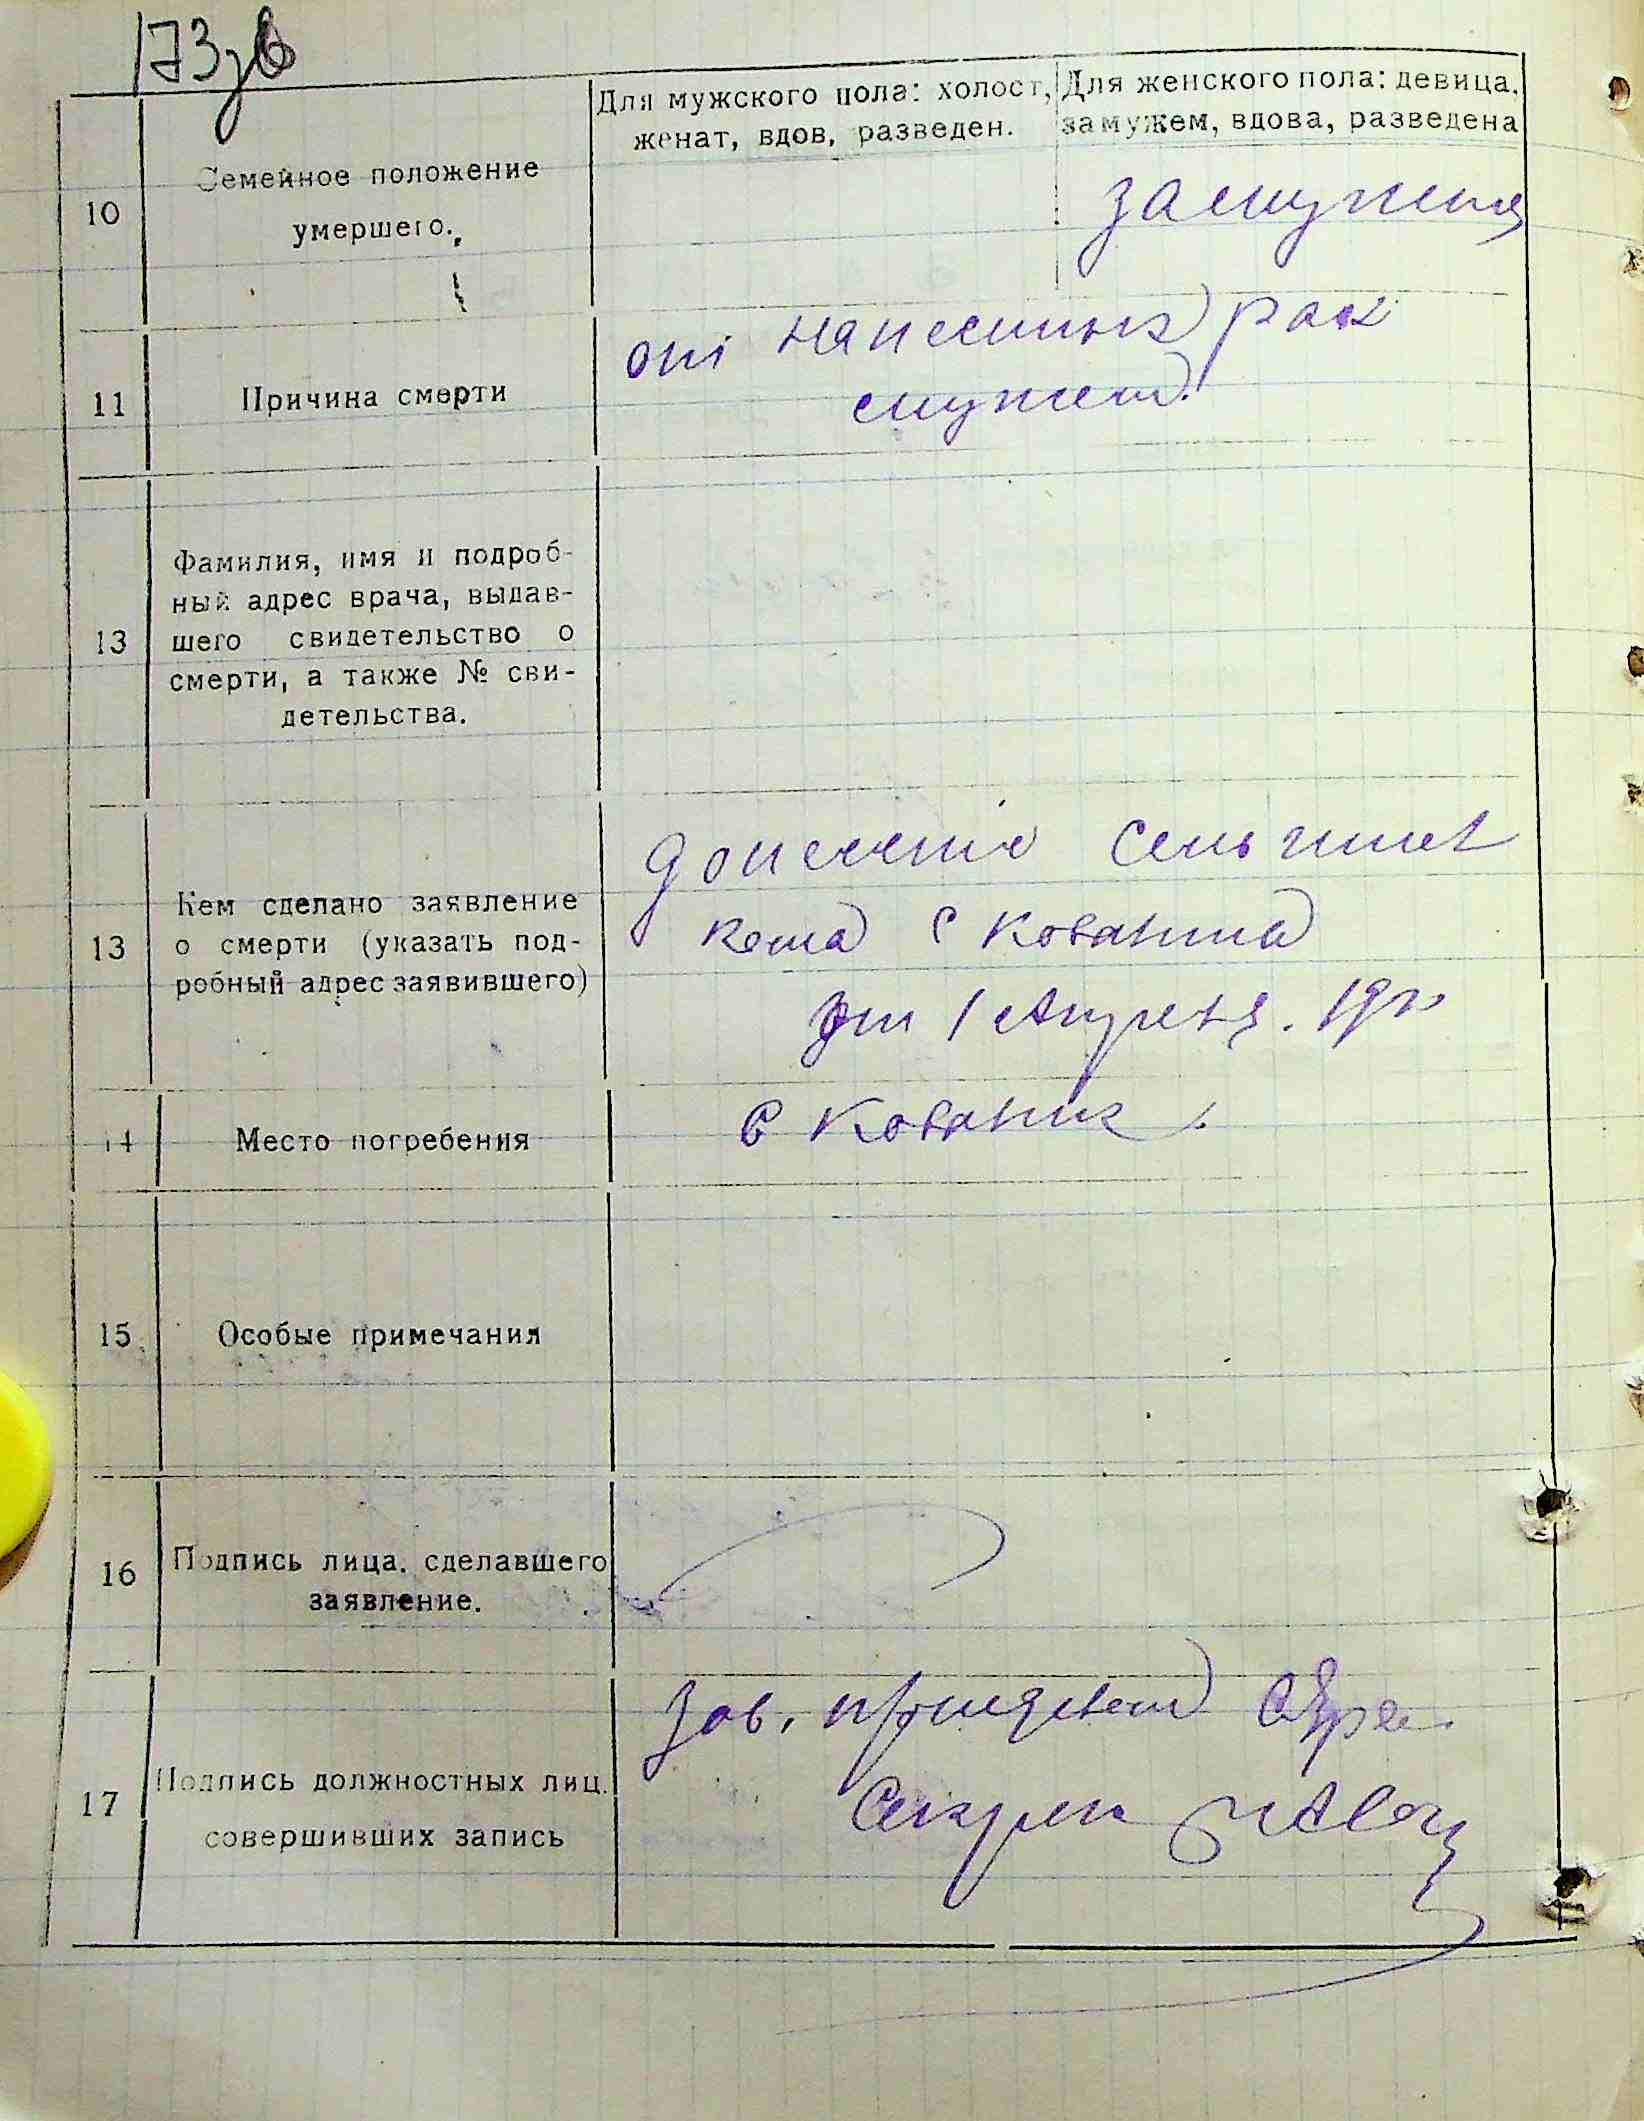 173 зв
Для мужского пола: холост,
женат, вдов, разведен.
Для женского пола: девица,
замужем, вдова, разведена
10
Семейное положение
умершего.
замужняя
11
Причина смерти
от нанесеных ран
мужем
13
Фамилия, имя и подроб-
ный адрес врача, выдав-
шего свидетельство о
смерти, а также № сви-
детельства.
13
Кем сделано заявление
о смерти (указать под-
робный адрес заявившего)
донесение Сельмилы
с Кованика
от 1 Апреля
14
Место погребения
в Кованик
15
Особые примечания
16
Подпись лица, сделавшего
заявление.
17
Подпись должностных лиц,
совершивших запись
Зав.
Секрет